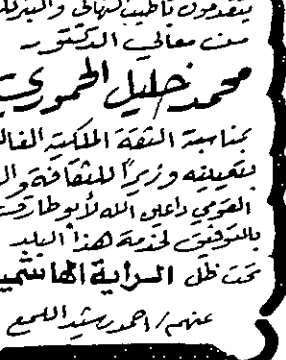 يتقدمون بأطيب التهاني والتبريك
من معالي الدكتور
محمد خليل الحموري
بمناسبة الثقة الملكية الغال
بتعيينه وزيراً للثقافة وال
القومي داعين الله لأبو طارق
بالتوفيق لخدمة هذا البلد
تحت ظل الراية الهاشمي
عنهم / احمد رشيد اللمع